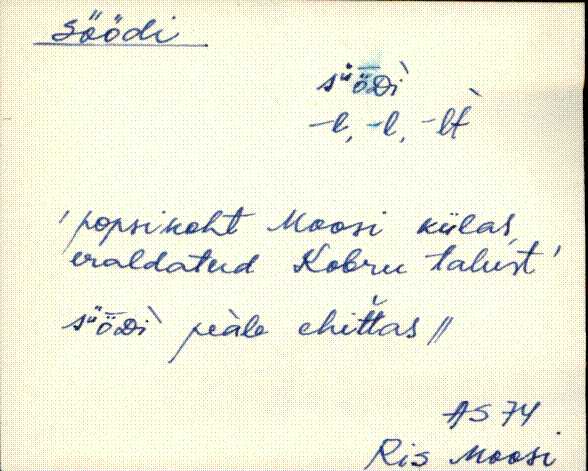 Söödi
süöDì
-l, -l, -lt̀
'popsikoht Moosi külas,
eraldatud Kobru talust'
süöDì peàle ehit̆tas //
AS 74
Ris Moosi